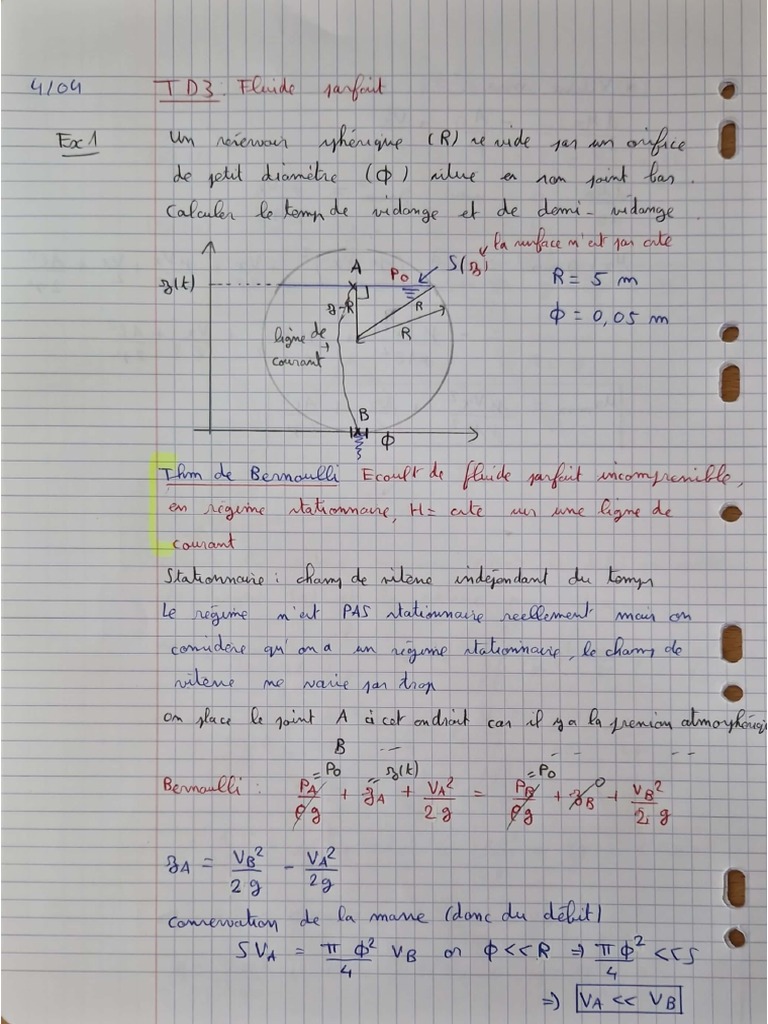 4/04
TD3 : Fluide parfait
Ex 1
Un réservoir sphérique (R) se vide par un orifice
de petit diamètre (Φ) situe en son point bas.
Calculer le temps de vidange et de demi-vidange
la surface n'est pas cste
A
P0
S(z)
z(t)
R = 5 m
z-R
R
R
Φ = 0,05 m
ligne de
courant
B
Φ
Thm de Bernoulli Ecoult de fluide parfait incompressible,
en régime stationnaire, H = cste sur une ligne de
courant
Stationnaire : champ de vitesse indépendant du temps
Le régime n'est PAS stationnaire reellement mais on
considère qu'on a un régime stationnaire, le champ de
vitesse ne varie pas trop
On place le point A à cet endroit car il y a la pression atmosphérique
B -- -- --
=P0 = z(t) =P0 0
Bernoulli : PA/ρg + zA + VA²/2g = PB/ρg + zB + VB²/2g
zA = VB²/2g - VA²/2g
conservation de la masse (donc du débit)
S VA = πΦ²/4 VB or Φ << R ⇒ πΦ²/4 << S
⇒ VA << VB